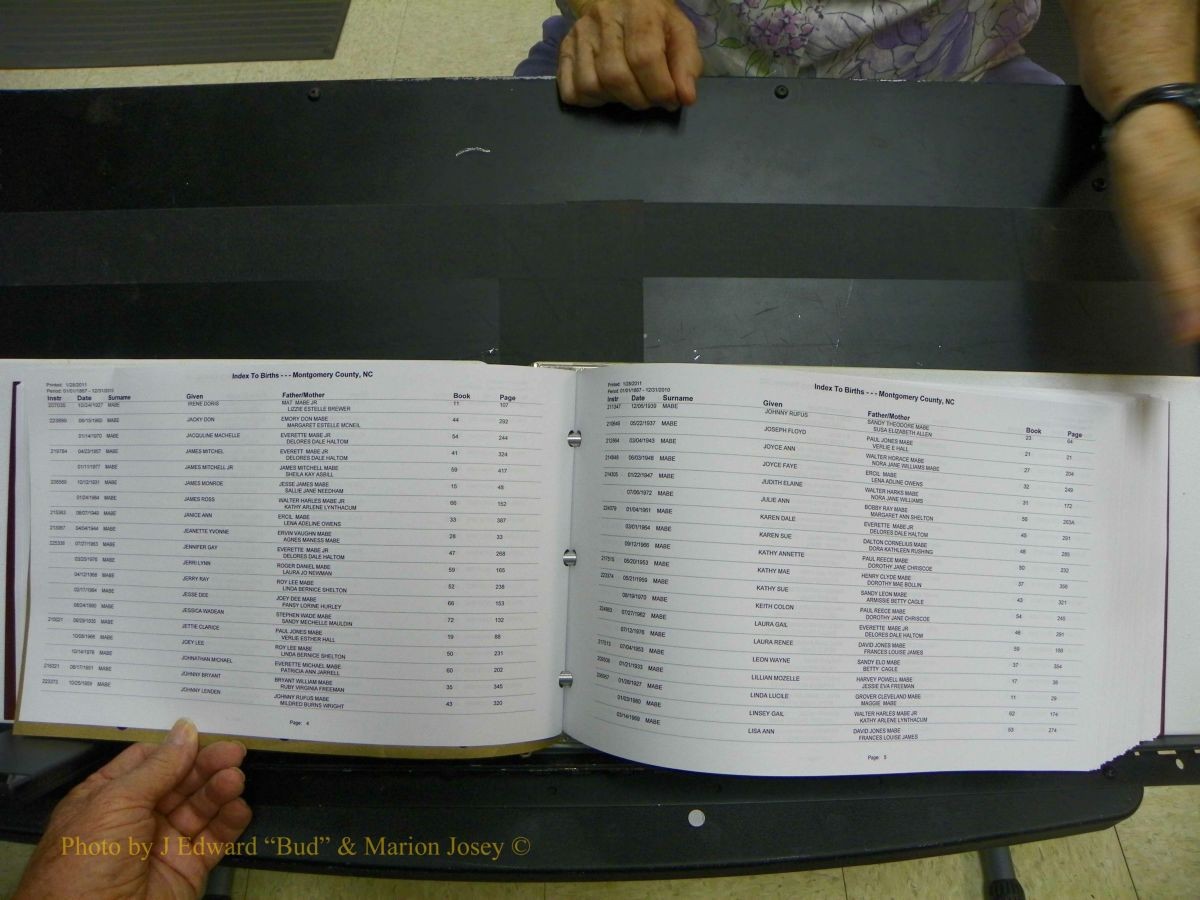 Index To Births - - - Montgomery County, NC
Printed: 1/28/2011
Period: 01/01/1867 - 12/31/2010
Instr Date Surname Given Father/Mother Book Page
10/24/1927 MABE IRENE DORIS MAT MABE JR 11 107
LIZZIE ESTELLE BREWER
MABE JACKY DON EMORY DON MABE 44 292
MARGARET ESTELLE MCNEIL
01/14/1970 MABE JACQULINE MACHELLE EVERETTE MABE JR 54 244
DELORES DALE HALTOM
219784 04/23/1957 MABE JAMES MITCHEL EVERETT MABE JR 41 324
DELORES DALE HALTOM
01/11/1977 MABE JAMES MITCHELL JR JAMES MITCHELL MABE 59 417
SHEILA KAY ASBILL
10/12/1931 MABE JAMES MONROE JESSE JAMES MABE 15 48
SALLIE JANE NEEDHAM
01/24/1984 MABE JAMES ROSS WALTER HARLES MABE JR 66 152
KATHY ARLENE LYNTHACUM
08/07/1949 MABE JANICE ANN ERCIL MABE 33 387
LENA ADELINE OWENS
04/04/1944 MABE JEANETTE YVONNE ERVIN VAUGHN MABE 28 33
AGNES MANESS MABE
MABE JENNIFER GAY EVERETTE MABE JR 47 268
DELORES DALE HALTOM
03/20/1976 MABE JERRI LYNN ROGER DANIEL MABE 59 165
LAURA JO NEWMAN
04/12/1968 MABE JERRY RAY ROY LEE MABE 52 238
LINDA BERNICE SHELTON
02/17/1984 MABE JESSE DEE JOEY DEE MABE 66 153
PANSY LORINE HURLEY
08/24/1990 MABE JESSICA WADEAN STEPHEN WADE MABE 72 102
SANDY MECHELLE MAULDIN
MABE JETTIE CLARICE PAUL JONES MABE 19 88
VERLIE ESTHER HALL
10/08/1966 MABE JOEY LEE ROY LEE MABE 50 231
LINDA BERNICE SHELTON
10/14/1978 MABE JOHNATHAN MICHAEL EVERETTE MICHAEL MABE 60 202
PATRICIA ANN JARRELL
216321 08/17/1951 MABE JOHNNY BRYANT BRYANT WILLIAM MABE 35 345
RUBY VIRGINIA FREEMAN
223373 10/25/1959 MABE JOHNNY LENDEN JOHNNY RUFUS MABE 43 320
MILDRED BURNS WRIGHT
Page: 4
Printed: 1/28/2011
Period: 01/01/1867 - 12/31/2010
Index To Births - - - Montgomery County, NC
Instr Date Surname Given Father/Mother Book Page
211347 12/06/1939 MABE JOHNNY RUFUS SANDY THEODORE MABE 23 64
SUSA ELIZABETH ALLEN
05/22/1937 MABE JOSEPH FLOYD PAUL JONES MABE 21 21
VERLIE E HALL
03/04/1943 MABE JOYCE ANN WALTER HORACE MABE 27 204
NORA JANE WILLIAMS MABE
06/03/1948 MABE JOYCE FAYE ERCIL MABE 32 249
LENA ADLINE OWENS
214305 01/22/1947 MABE JUDITH ELAINE WALTER HARKS MABE 31 172
NORA JANE WILLIAMS
07/06/1972 MABE JULIE ANN BOBBY RAY MABE 56 203A
MARGARET ANN SHELTON
01/04/1961 MABE KAREN DALE EVERETTE MABE JR 45 291
DELORES DALE HALTOM
03/01/1964 MABE KAREN SUE DALTON CORNELIUS MABE 48 285
DORA KATHLEEN RUSHING
09/12/1966 MABE KATHY ANNETTE PAUL REECE MABE 50 232
DOROTHY JANE CHRISCOE
217515 05/20/1953 MABE KATHY MAE HENRY CLYDE MABE 37 356
DOROTHY MAE BOLLIN
223374 05/21/1959 MABE KATHY SUE SANDY LEON MABE 43 321
ARMISSIE BETTY CAGLE
08/19/1970 MABE KEITH COLON PAUL REECE MABE 54 245
DOROTHY JANE CHRISCOE
07/27/1962 MABE LAURA GAIL EVERETTE MABE JR 46 291
DELORES DALE HALTOM
07/12/1976 MABE LAURA RENEE DAVID JONES MABE 59
FRANCES LOUISE JAMES
07/04/1953 MABE LEON WAYNE SANDY ELO MABE 37 354
BETTY CAGLE
01/21/1933 MABE LILLIAN MOZELLE HARVEY POWELL MABE 17 38
JESSIE EVA FREEMAN
01/28/1927 MABE LINDA LUCILE GROVER CLEVELAND MABE 11 29
MAGGIE MABE
01/23/1980 MABE LINSEY GAIL WALTER HARLES MABE JR 62 174
KATHY ARLENE LYNTHACUM
03/14/1969 MABE LISA ANN DAVID JONES MABE 53 274
FRANCES LOUISE JAMES
Page: 5
Photo by J Edward “Bud” & Marion Josey ©